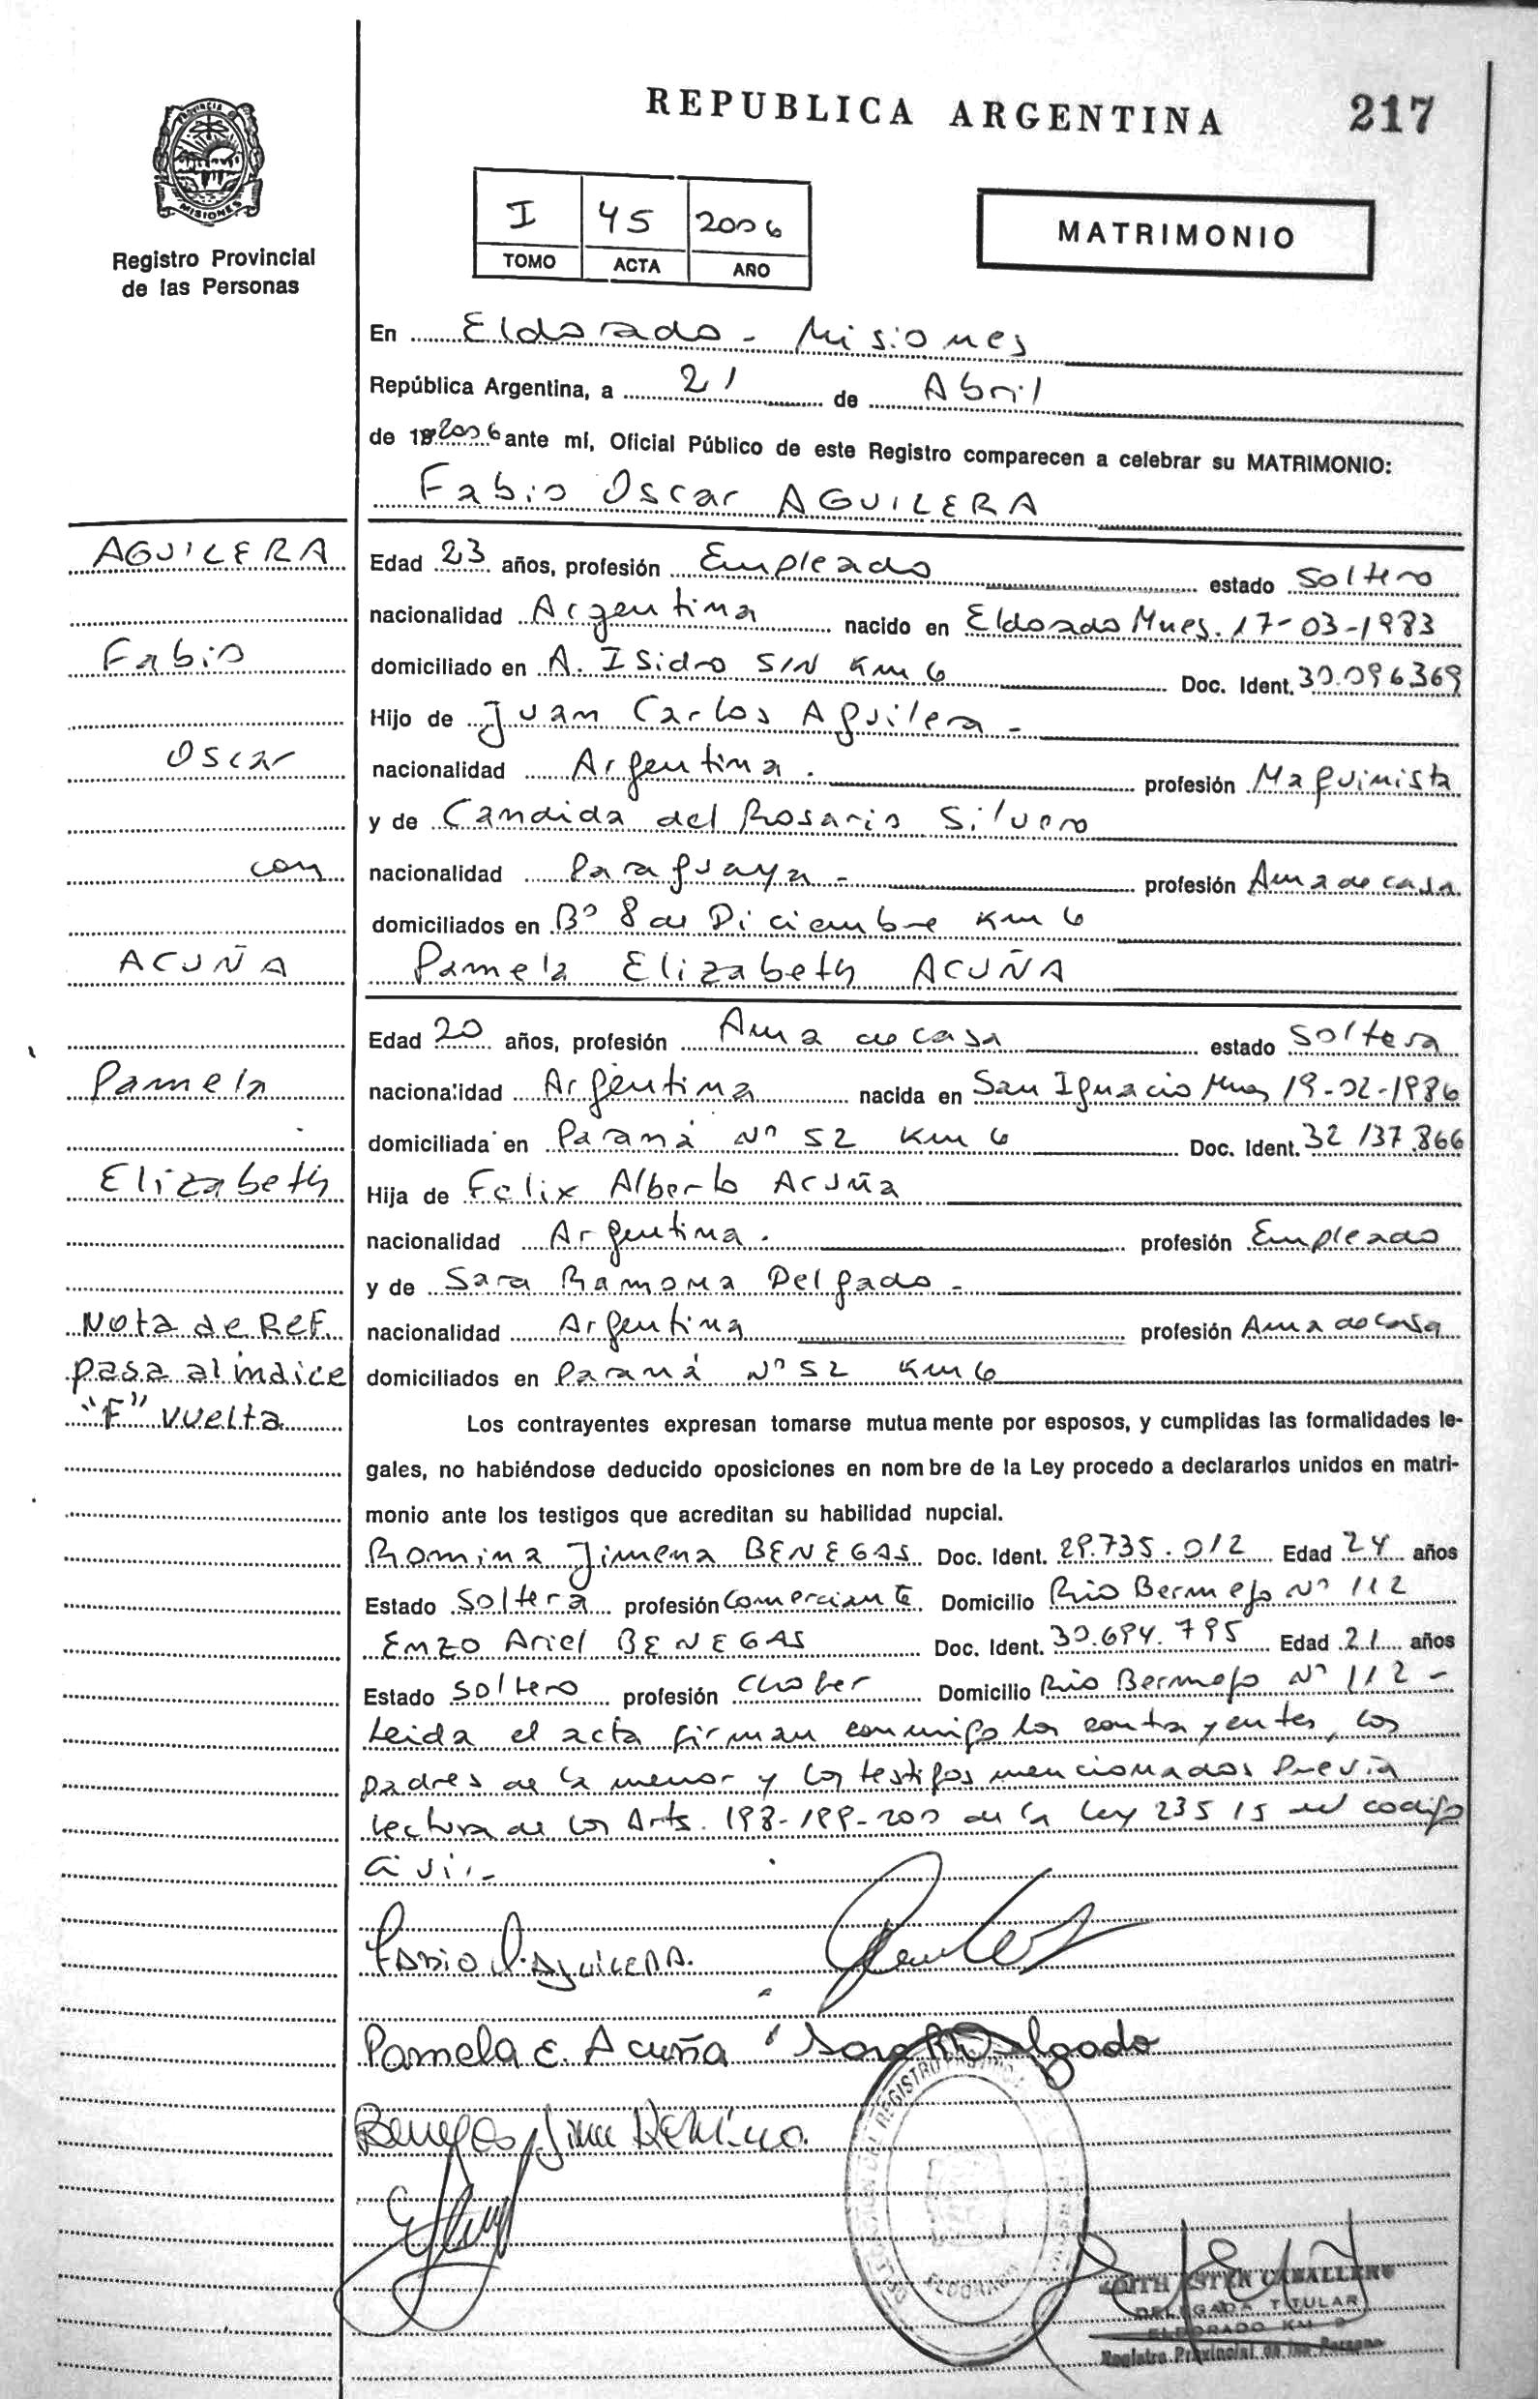 REPUBLICA ARGENTINA 217
MISIONES
Registro Provincial
de las Personas
I 45 2006
TOMO ACTA AÑO
MATRIMONIO
En Eldorado - Misiones
República Argentina, a 21 de Abril
de 2006 ante mí, Oficial Público de este Registro comparecen a celebrar su MATRIMONIO:
Fabio Oscar AGUILERA
AGUILERA
Fabio
Oscar
con
ACUÑA
Pamela
Elizabeth
Nota de Ref.
pasa al indice
"F" vuelta
Edad 23 años, profesión Empleado estado Soltero
nacionalidad Argentina nacido en Eldorado Mnes. 17-03-1983
domiciliado en A. Isidro S/N Km 6 Doc. Ident. 30.096369
Hijo de Juan Carlos Aguilera -
nacionalidad Argentina. profesión Maquinista
y de Candida del Rosario Silvero
nacionalidad Paraguaya - profesión Ama de casa
domiciliados en Bº 8 de Diciembre Km 6
Pamela Elizabeth ACUÑA
Edad 20 años, profesión Ama de casa estado Soltera
nacionalidad Argentina nacida en San Ignacio Mnes 19-02-1986
domiciliada en Paraná Nº 52 Km 6 Doc. Ident. 32 137.866
Hija de Felix Alberto Acuña
nacionalidad Argentina. profesión Empleado
y de Sara Ramona Delgado -
nacionalidad Argentina profesión Ama de casa
domiciliados en Paraná Nº 52 Km 6
Los contrayentes expresan tomarse mutuamente por esposos, y cumplidas las formalidades le-
gales, no habiéndose deducido oposiciones en nombre de la Ley procedo a declararlos unidos en matri-
monio ante los testigos que acreditan su habilidad nupcial.
Romina Jimena BENEGAS Doc. Ident. 29.735.012 Edad 24 años
Estado Soltera profesión Comerciante Domicilio Rio Bermejo Nº 112
Enzo Ariel BENEGAS Doc. Ident. 30.694.795 Edad 21 años
Estado soltero profesión Chofer Domicilio Rio Bermejo Nº 112 -
Leida el acta firman conmigo los contrayentes, los
padres de la menor y los testigos mencionados Previa
lectura de los Arts. 198-199-200 de la Ley 23515 del codigo
Civil.-
Fabio O. Aguilera.
Pamela E. Acuña Sara R Delgado
Benegas Romina.
ELDORADO
EDITH ESTER CABALLERO
DELEGADA TITULAR
ELDORADO KM 9
Registro Provincial de las Personas